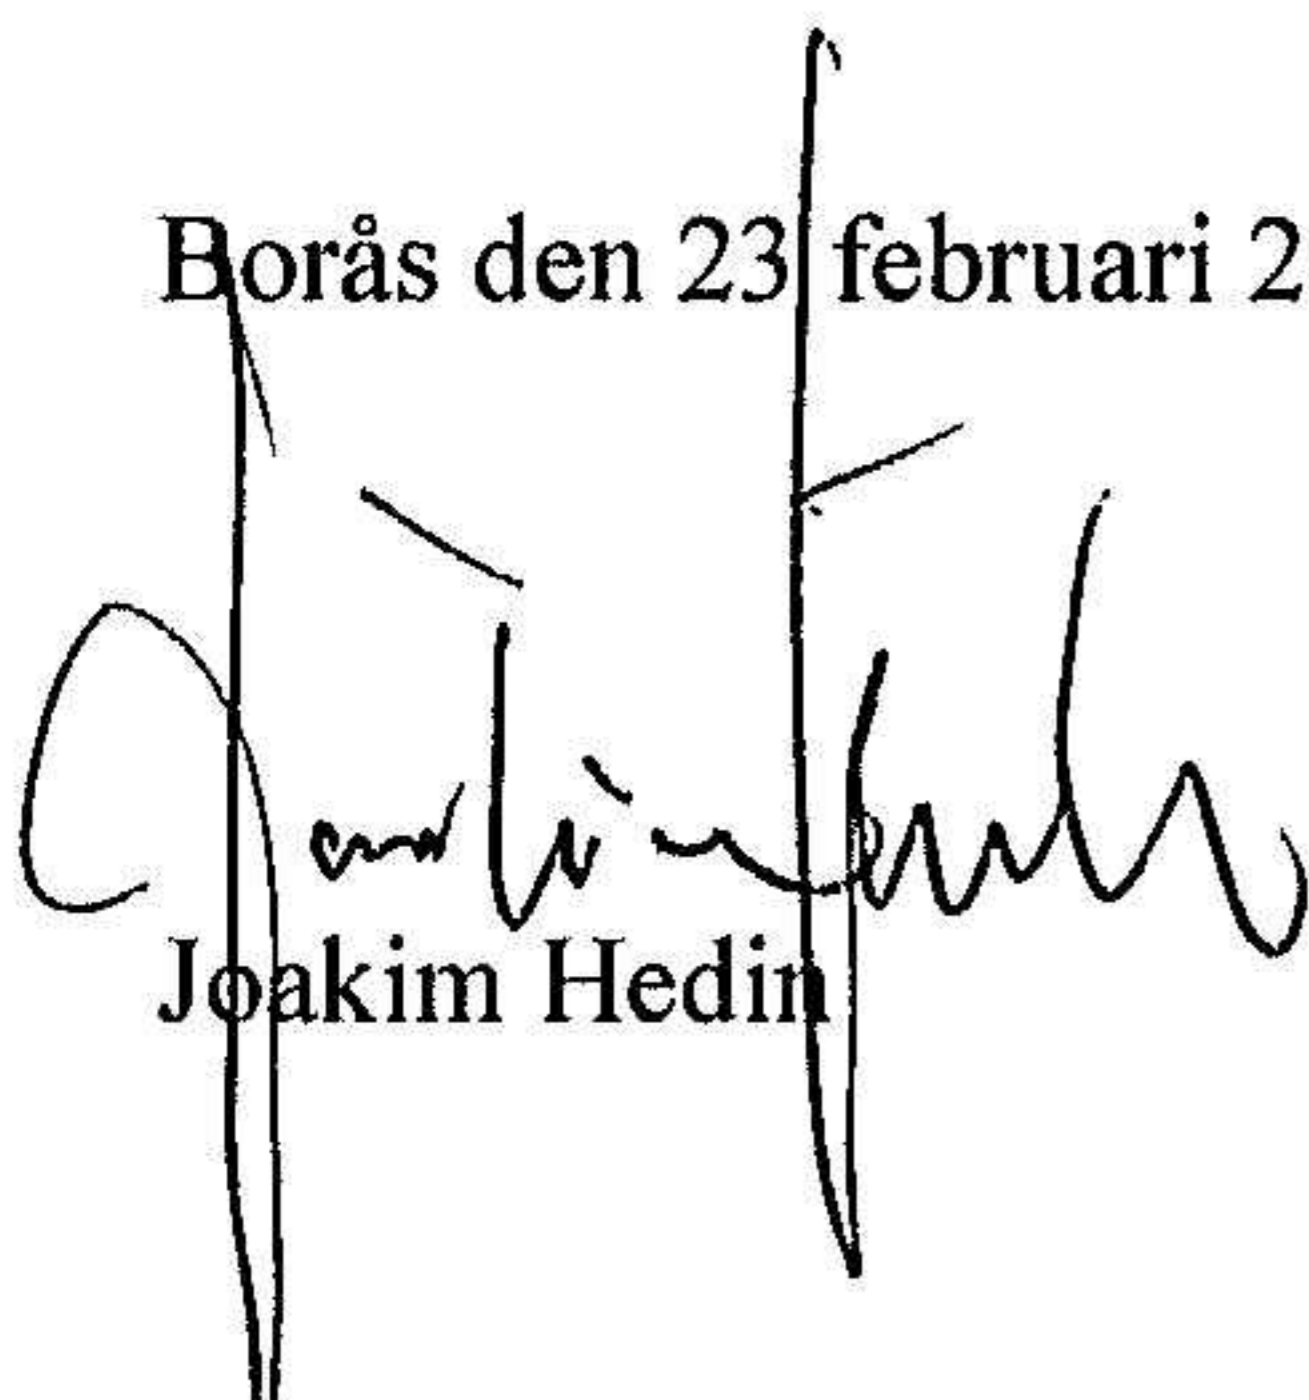 Borås den 23 februari 2
Joakim Hedin